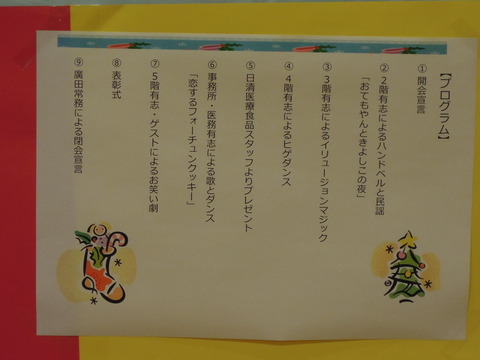 【プログラム】
①開会宣言
②２階有志によるハンドベルと民謡
「おてもやんときよしこの夜」
③３階有志によるイリュージョンマジック
④４階有志によるヒゲダンス
⑤日清医療食品スタッフよりプレゼント
⑥事務所・医務有志による歌とダンス
「恋するフォーチュンクッキー」
⑦５階有志・ゲストによるお笑い劇
⑧表彰式
⑨廣田常務による閉会宣言